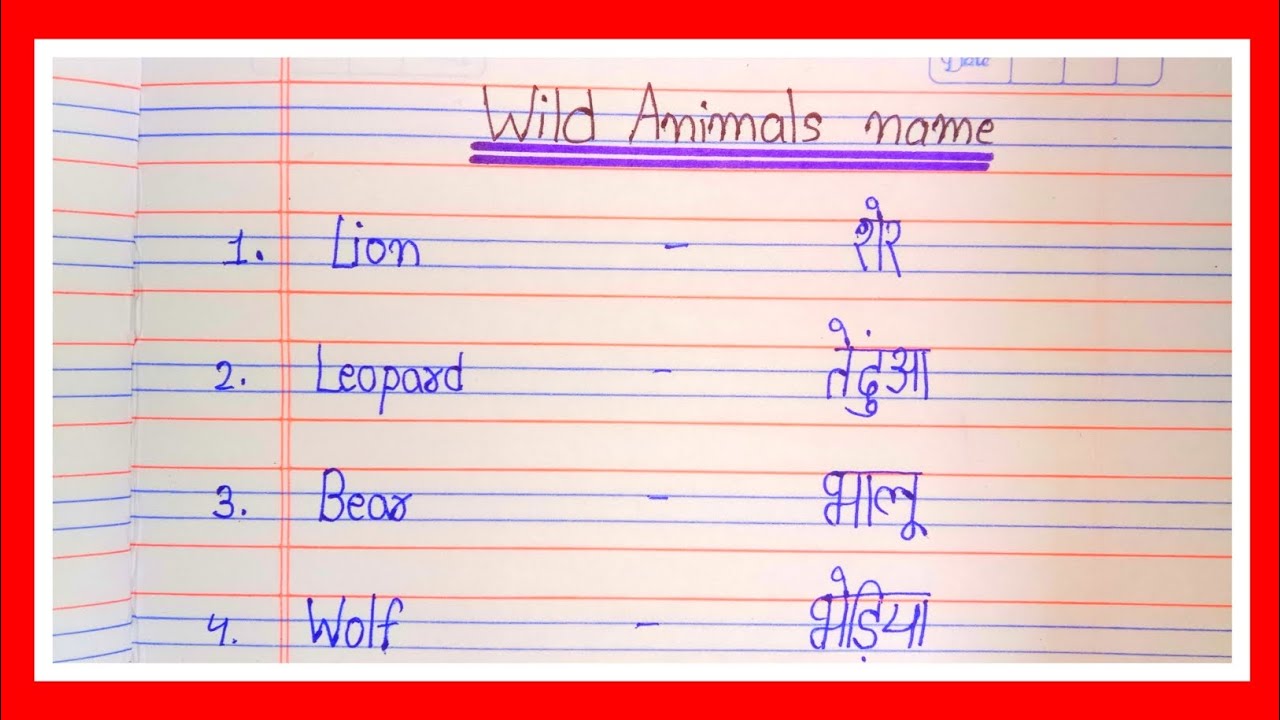 Date
Wild Animals name
1. Lion - शेर
2. Leopard - तेदुंआ
3. Bear - भालू
4. Wolf - भेड़िया